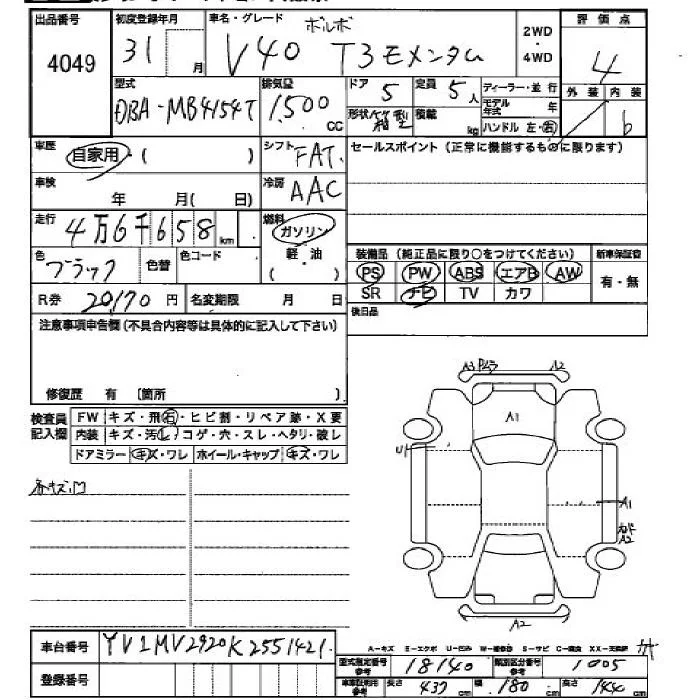 出品番号 初度登録年月 車名・グレード ボルボ 2WD・4WD 評価点
4049 31 月 V40 T3モメンタム 4
型式 排気量 ドア 定員 ディーラー・並行 外装 内装
DBA-MB4154T 1,500 cc 5 5人 モデル年式 年
形状 箱型 積載 kg ハンドル 左・右 b
車歴 自家用・( ) シフト FAT セールスポイント (正常に機能するものに限ります)
車検 年 月( 日) 冷房 AAC
走行 4万6千658 km 燃料 ガソリン
軽・油
( )
色 ブラック 色替 色コード
装備品 (純正品に限り○をつけてください) 新車保証書
PS PW ABS エアB AW 有・無
SR ナビ TV カワ
R券 20170円 名変期限 月 日 後日品
注意事項申告欄 (不具合内容等は具体的に記入して下さい)
修復歴 有 〔箇所 〕
検査員記入欄 FW キズ・飛石・ヒビ割・リペア跡・X要
内装 キズ・汚レ・コゲ・穴・スレ・ヘタリ・破レ
ドアミラー キズ・ワレ ホイール・キャップ キズ・ワレ
各キズ凹
A3 P23 A2
A1
U1
A1
A2
A2
車台番号 YV1MV2920K2551421
A-キズ E-エクボ U-凹み
登録番号
型式指定番号 参考 18140 類別区分番号 参考 1005
長さ 437 cm 幅 180 cm 高さ 144 cm